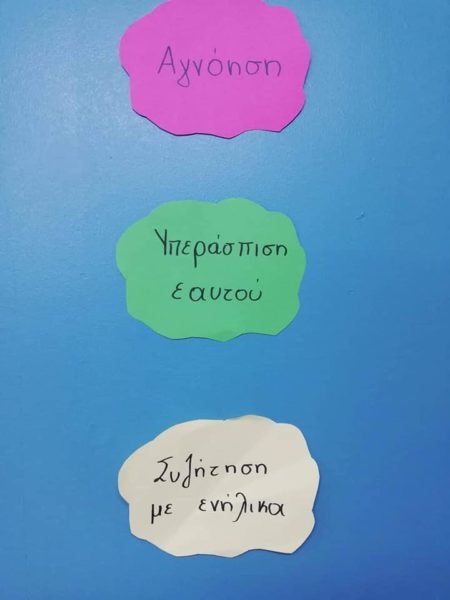 Αγνόηση
Υπεράσπιση
εαυτού
Συζήτηση
με ενήλικα